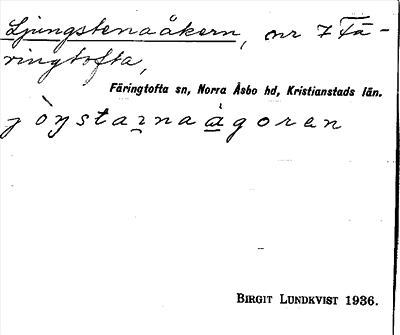 Ljungstenaåkern, nr 7 Fä-
ringtofta,
Färingtofta sn, Norra Åsbo hd, Kristianstads län.
jòŋstaɿnaågoren
BIRGIT LUNDKVIST 1936.